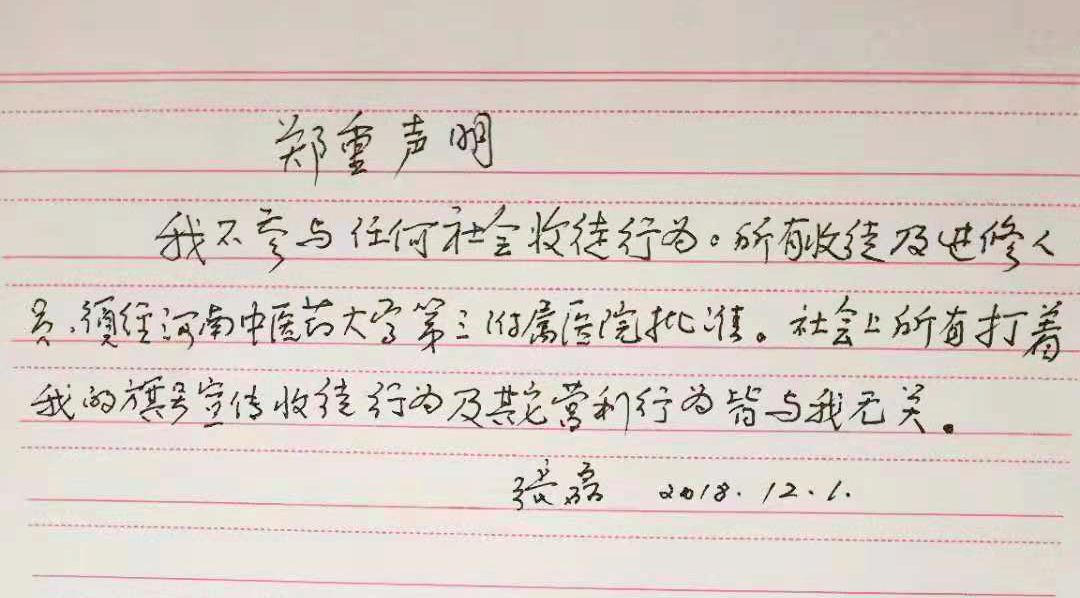 郑重声明
我不参与任何社会收徒行为。所有收徒及进修人
员,须经河南中医药大学第三附属医院批准。社会上所有打着
我的旗号宣传收徒行为及其它营利行为皆与我无关。
张磊 2018.12.1.